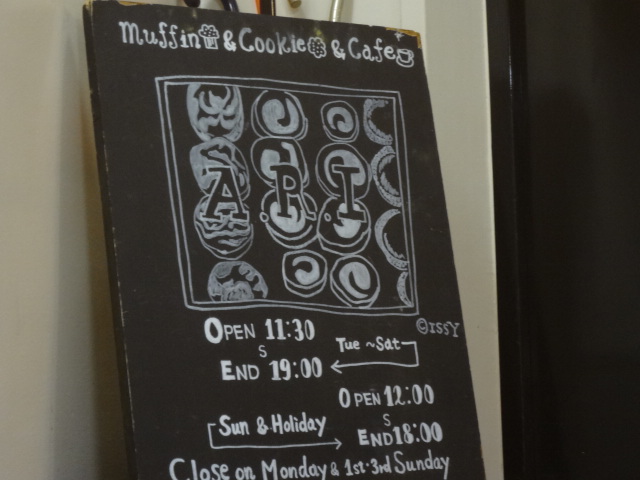 Muffin & Cookie & Cafe
A.P.I.
©ISSY
OPEN 11:30
S
END 19:00
Tue ~Sat
OPEN 12:00
S
END 18:00
Sun & Holiday
Close on Monday & 1st・3rd Sunday